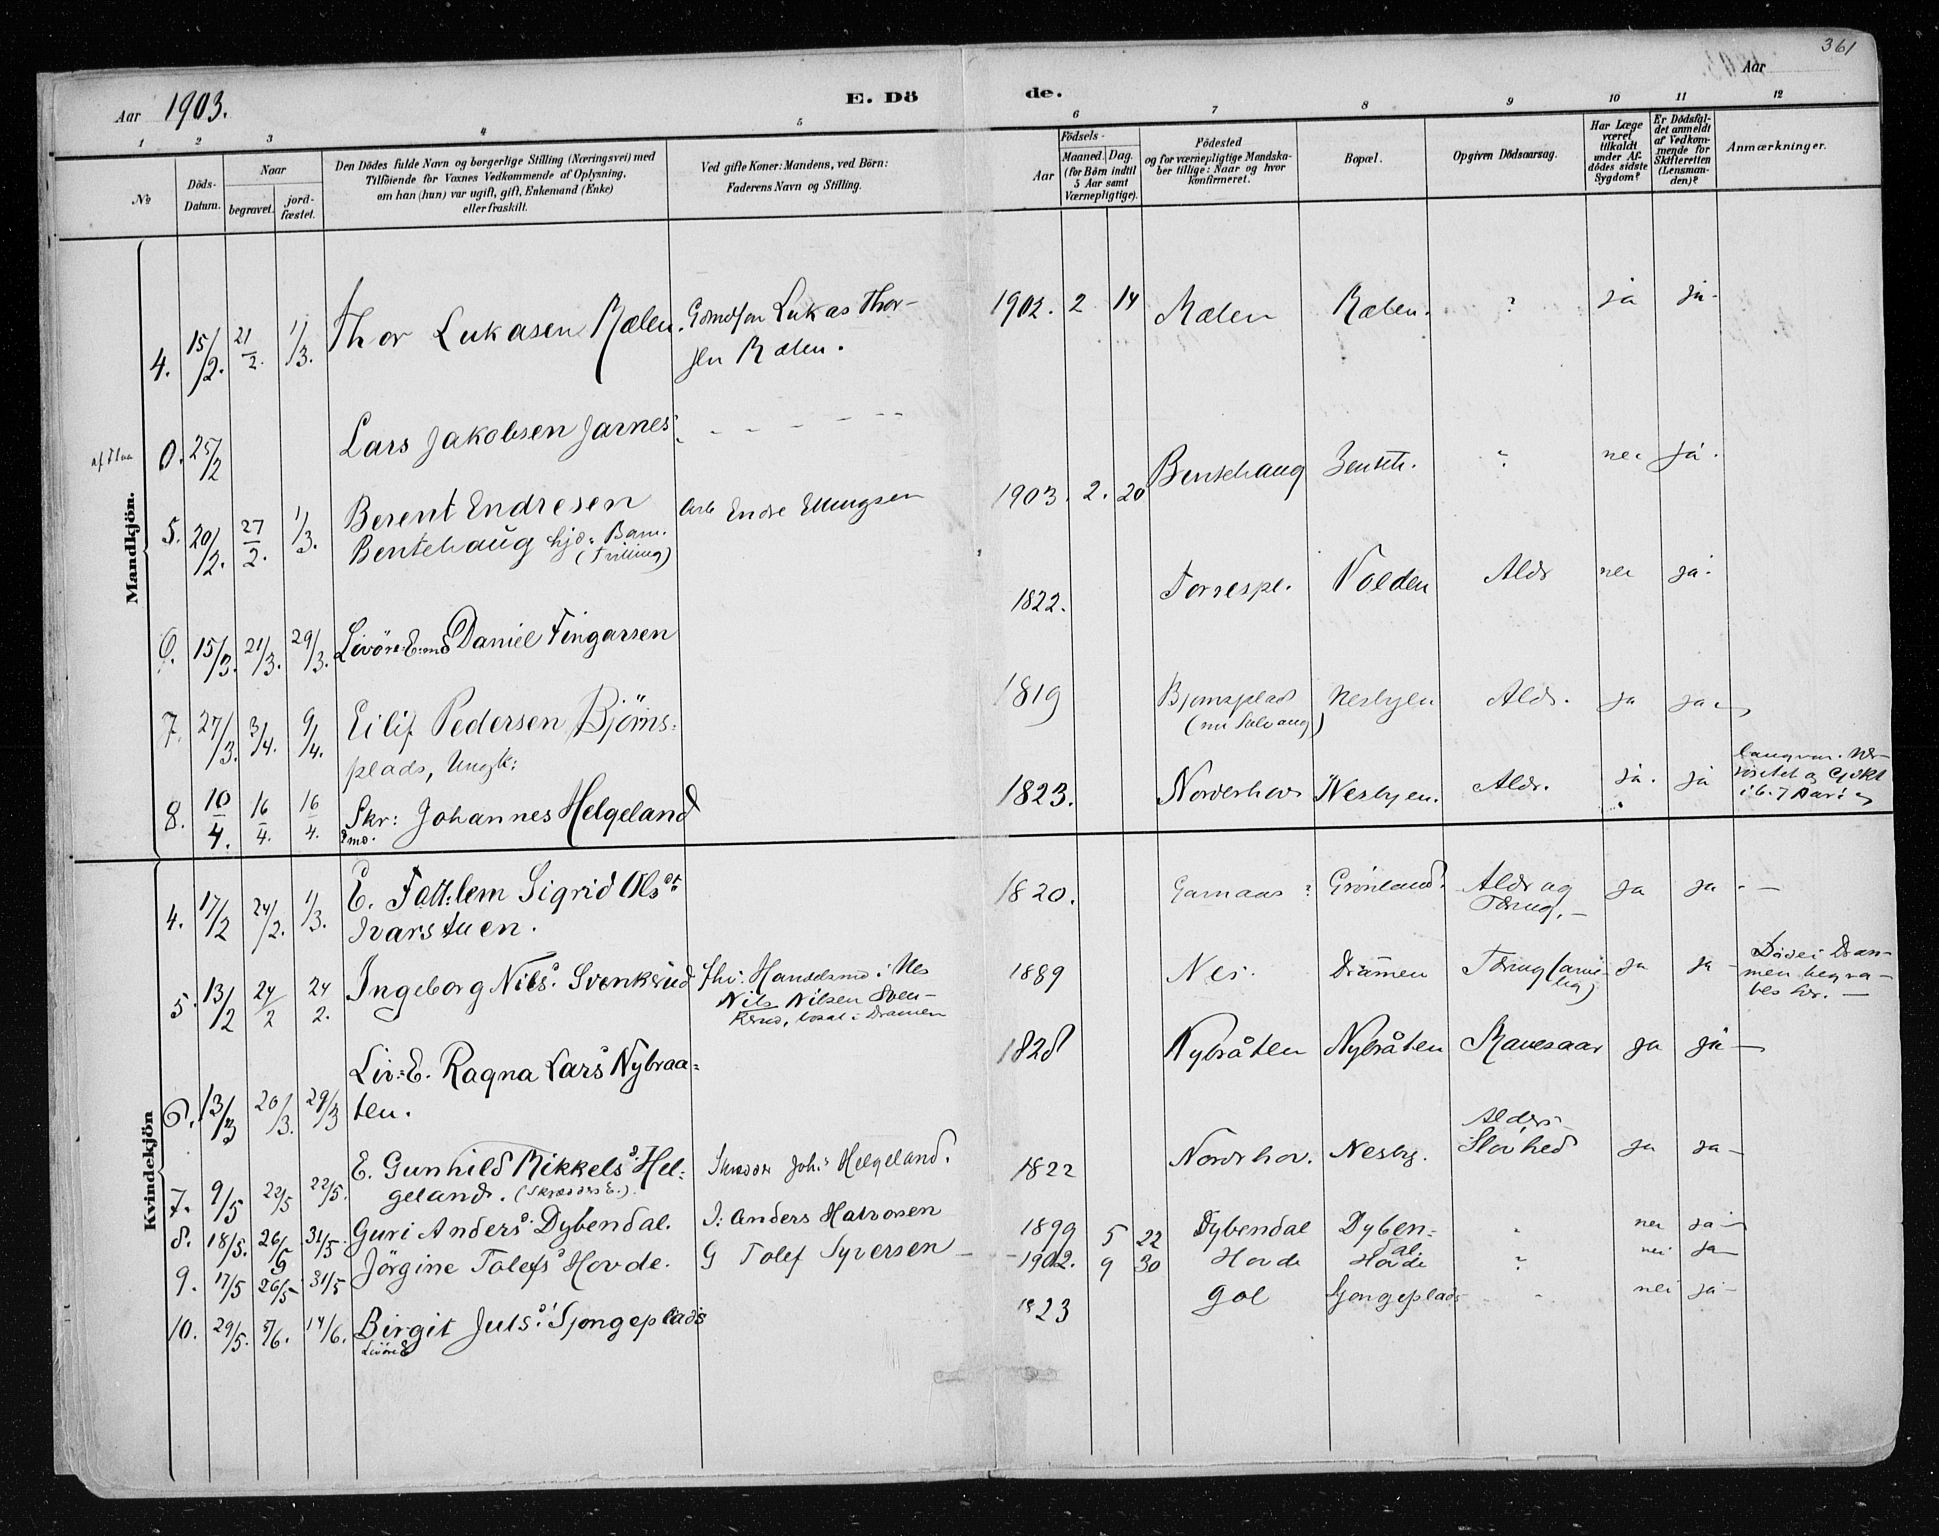 361
Aar 1903.
E. Dö
de.
Aar
1 2 3 4 5 6 7 8 9 10 11 12
No
Döds-
Datum.
Naar
begravet.
jord-
fæstet.
Den Dödes fulde Navn og borgerlige Stilling (Næringsvei) med
Tilföiende for Voxnes Vedkommende af Oplysning,
om han (hun) var ugift, gift, Enkemand (Enke)
eller fraskilt.
Ved gifte Koner: Mandens, ved Börn:
Faderens Navn og Stilling.
Födsels-
Aar
Maaned. Dag.
(for Börn indtil
5 Aar samt
Værnepligtige).
Födested
og for værnepligtige Mandska-
ber tillige: Naar og hvor
konfirmeret.
Bopæl.
Opgiven Dödsaarsag.
Har Læge
været
tilkaldt
under Af-
dödes sidste
Sygdom?
Er Dödsfal-
det anmeldt
af Vedkom-
mende for
Skifteretten
(Lensman-
den)?
Anmærkninger.
Mandkjön.
4. 15/2. 21/2. 1/3. Thor Lukasen Rælen. Gdmdsøn Lukas Thor-
sen Rælen.
1902. 2 14 Rælen Rælen. ? ja ja.
0. 25/2 Lars Jakobsen Jarnes. - - - -
5. 20/2. 27/2. 1/3. Berent Endresen
Bentehaug hjd: Barn.
(Tvilling)
Arb Endre Ellingsen
1903. 2. 20 Bentehaug Benteh. ? nei ja.
6. 15/3. 21/3. 29/3. Livöre: E:md Daniel Fingarsen
1822. Torrespl. Volden Aldr nei ja.
7. 27/3. 3/4. 9/4. Eilif Pedersen Björns-
plads, Ungk:
1819 Bjornsplads
(nu Solvang)
Nesbyen Aldr. ja ja
8. 10/4. 16/4. 16/4. Skr: Johannes Helgeland
Emd.
1823. Norderhov Nesbyen. Aldr. ja. ja
i 6-7 Aar
Kvindekjön
4. 17/2 24/2. 1/3. E. Fatt:lem Sigrid Olsdtr
Ivarstuen.
1820. Garnaas ? Grönland. Aldr og
Tæring. ja ja. -
5. 13/2 24/2 24/2. Ingeborg Nilsd. Svenkrud
Handelsmd i Nes
Nils Nilsen Sven-
krud, bosat i Dramen
1889 Nes. Drammen Tæring (arve-
lig) ja ja - Död i Dram-
men begra-
ves her. -
6. 13/3 20/3. 29/3 Liv: E. Ragna Larsd Nybraa-
ten.
1828 Nybråten Nybråten Mavesaar ja ja -
7. 9/5 22/5 22/5. E. Gunhild Mikkelsd. Hel-
geland. (Skrædders E.).
Skrædder Joh:s Helgeland.
1822 Nordrhov. Nesby. Alders-
Slövhed ja ja -
8. 18/5. 26/5 31/5. Guri Andersd. Dybendal. I: Anders Halvorsen
1899 5 22 Dybendal Dyben-
dal. " nei ja -
9. 17/5 26/5 31/5 Jörgine Tolefsd Hovde. G Tolef Syversen -
1902. 9 30 Hovde Hovde ? nei ja
10. 29/5. 5/6. 14/6. Birgit Julsd: Sjongeplads
Livöre E
1823 Gol Sjongeplads " nei ja -